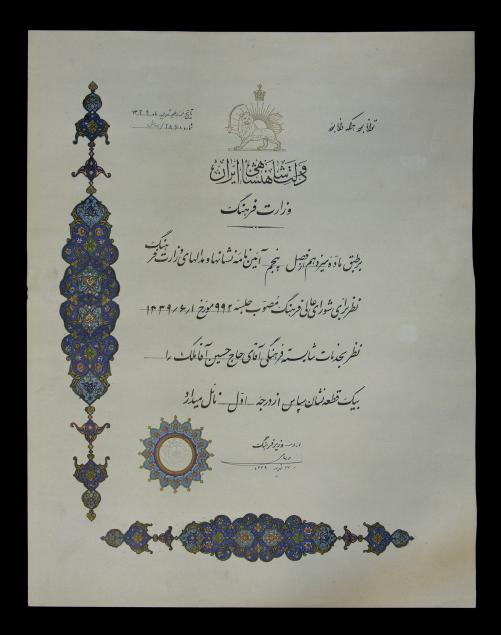 توانا بود هر که دانا بود
تاریخ
دولت شاهنشاهی ایران
وزارت فرهنگ
بر طبق ماده سیزدهم از فصل پنجم آیین نامه نشانها و مدالهای وزارت فرهنگ
نظر برای شورای عالی فرهنگ مصوب جلسه ۹۹۲ مورخ ۱۳۳۹/۶/۱
نظر بخدمات شایسته فرهنگی آقای حاج حسین آقا ملک را
بیک قطعه نشان سپاس از درجه اول نائل میدارد
وزیر فرهنگ
۱۳۳۹